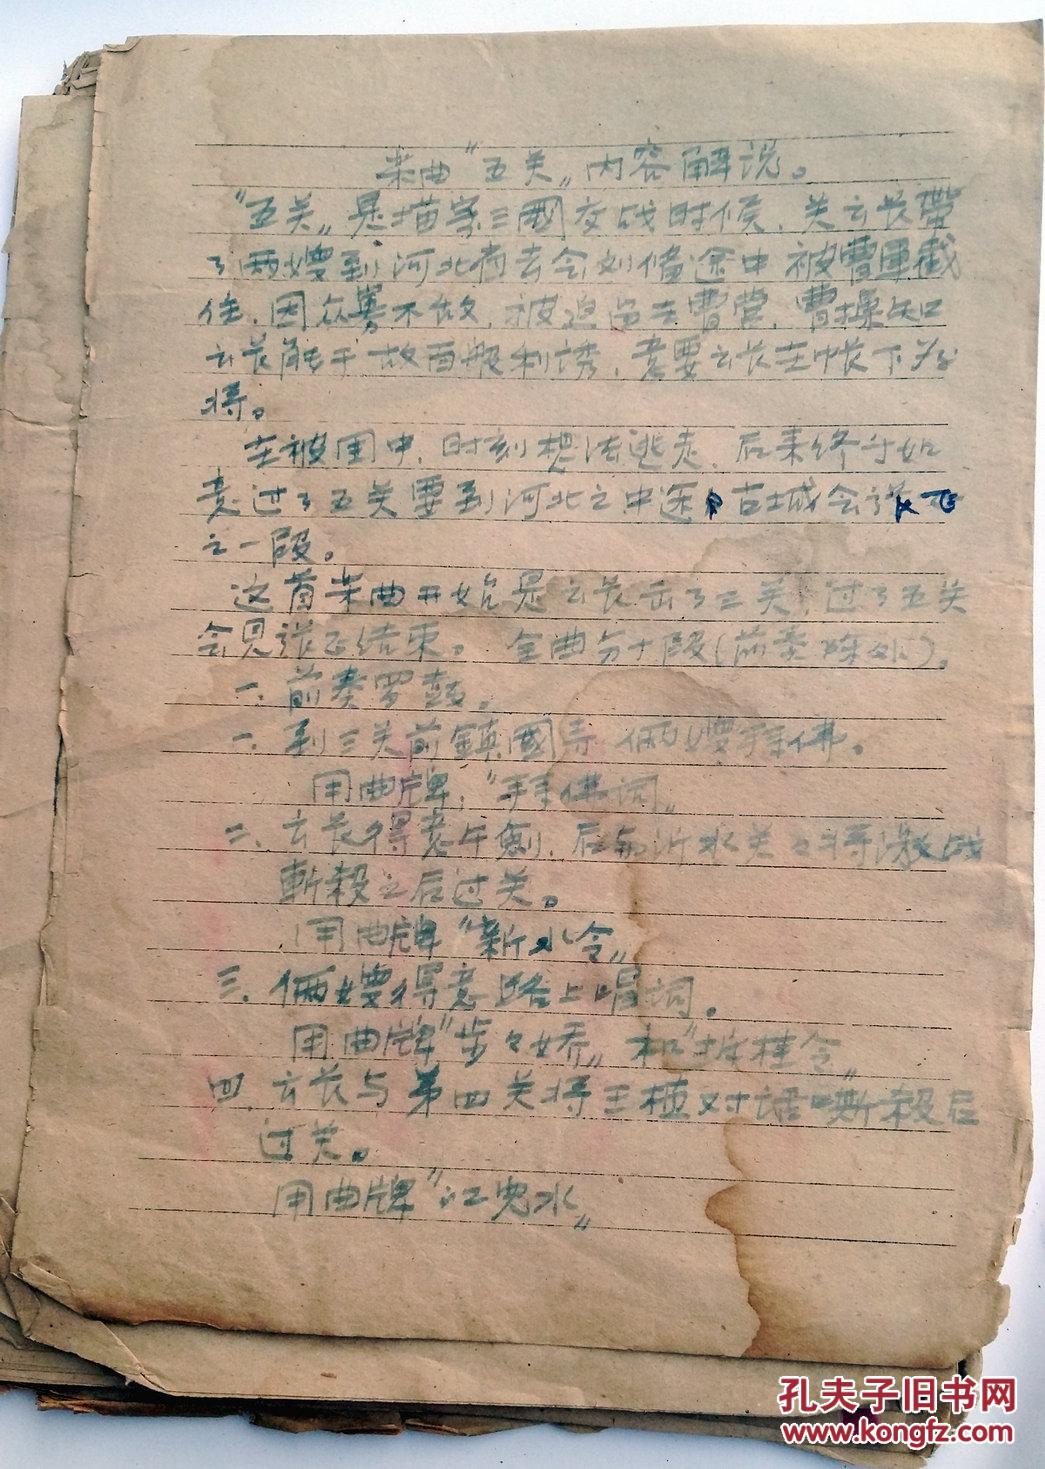 乐曲“五关”内容解说。
“五关”是描写三國交战时候，关云长帶
了两嫂到河北省去会刘备途中被曹軍截
住，因众寡不敌，被迫留去曹营，曹操知
云长能干，故百般利诱，意要云长在帐下为
将。
在被困中，时刻想法逃走，后来终于如
意过了五关要到河北之中途，古城会张飞
之一段。
这首乐曲开始是云长击了三关，过了五关
会见张飞结束。全曲分十段（前奏除外）。
一、前奏罗鼓。
一、到三关前鎮國寺俩嫂拜佛。
用曲牌，“拜佛词”
二、云长得意午劍，后与沂水关々将激战
斬殺之后过关。
用曲牌“新水令”
三、俩嫂得意路上唱词。
用曲牌“步々娇”和“折桂令”
四、云长与第四关将王植对话嘶殺后
过关。
用曲牌“江兒水”
孔夫子旧书网
www.kongfz.com